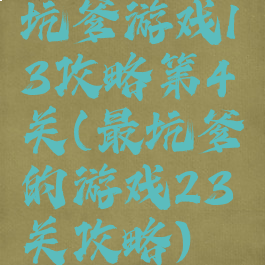 坑爹游戏1
3攻略第4
关(最坑爹
的游戏23
关攻略)